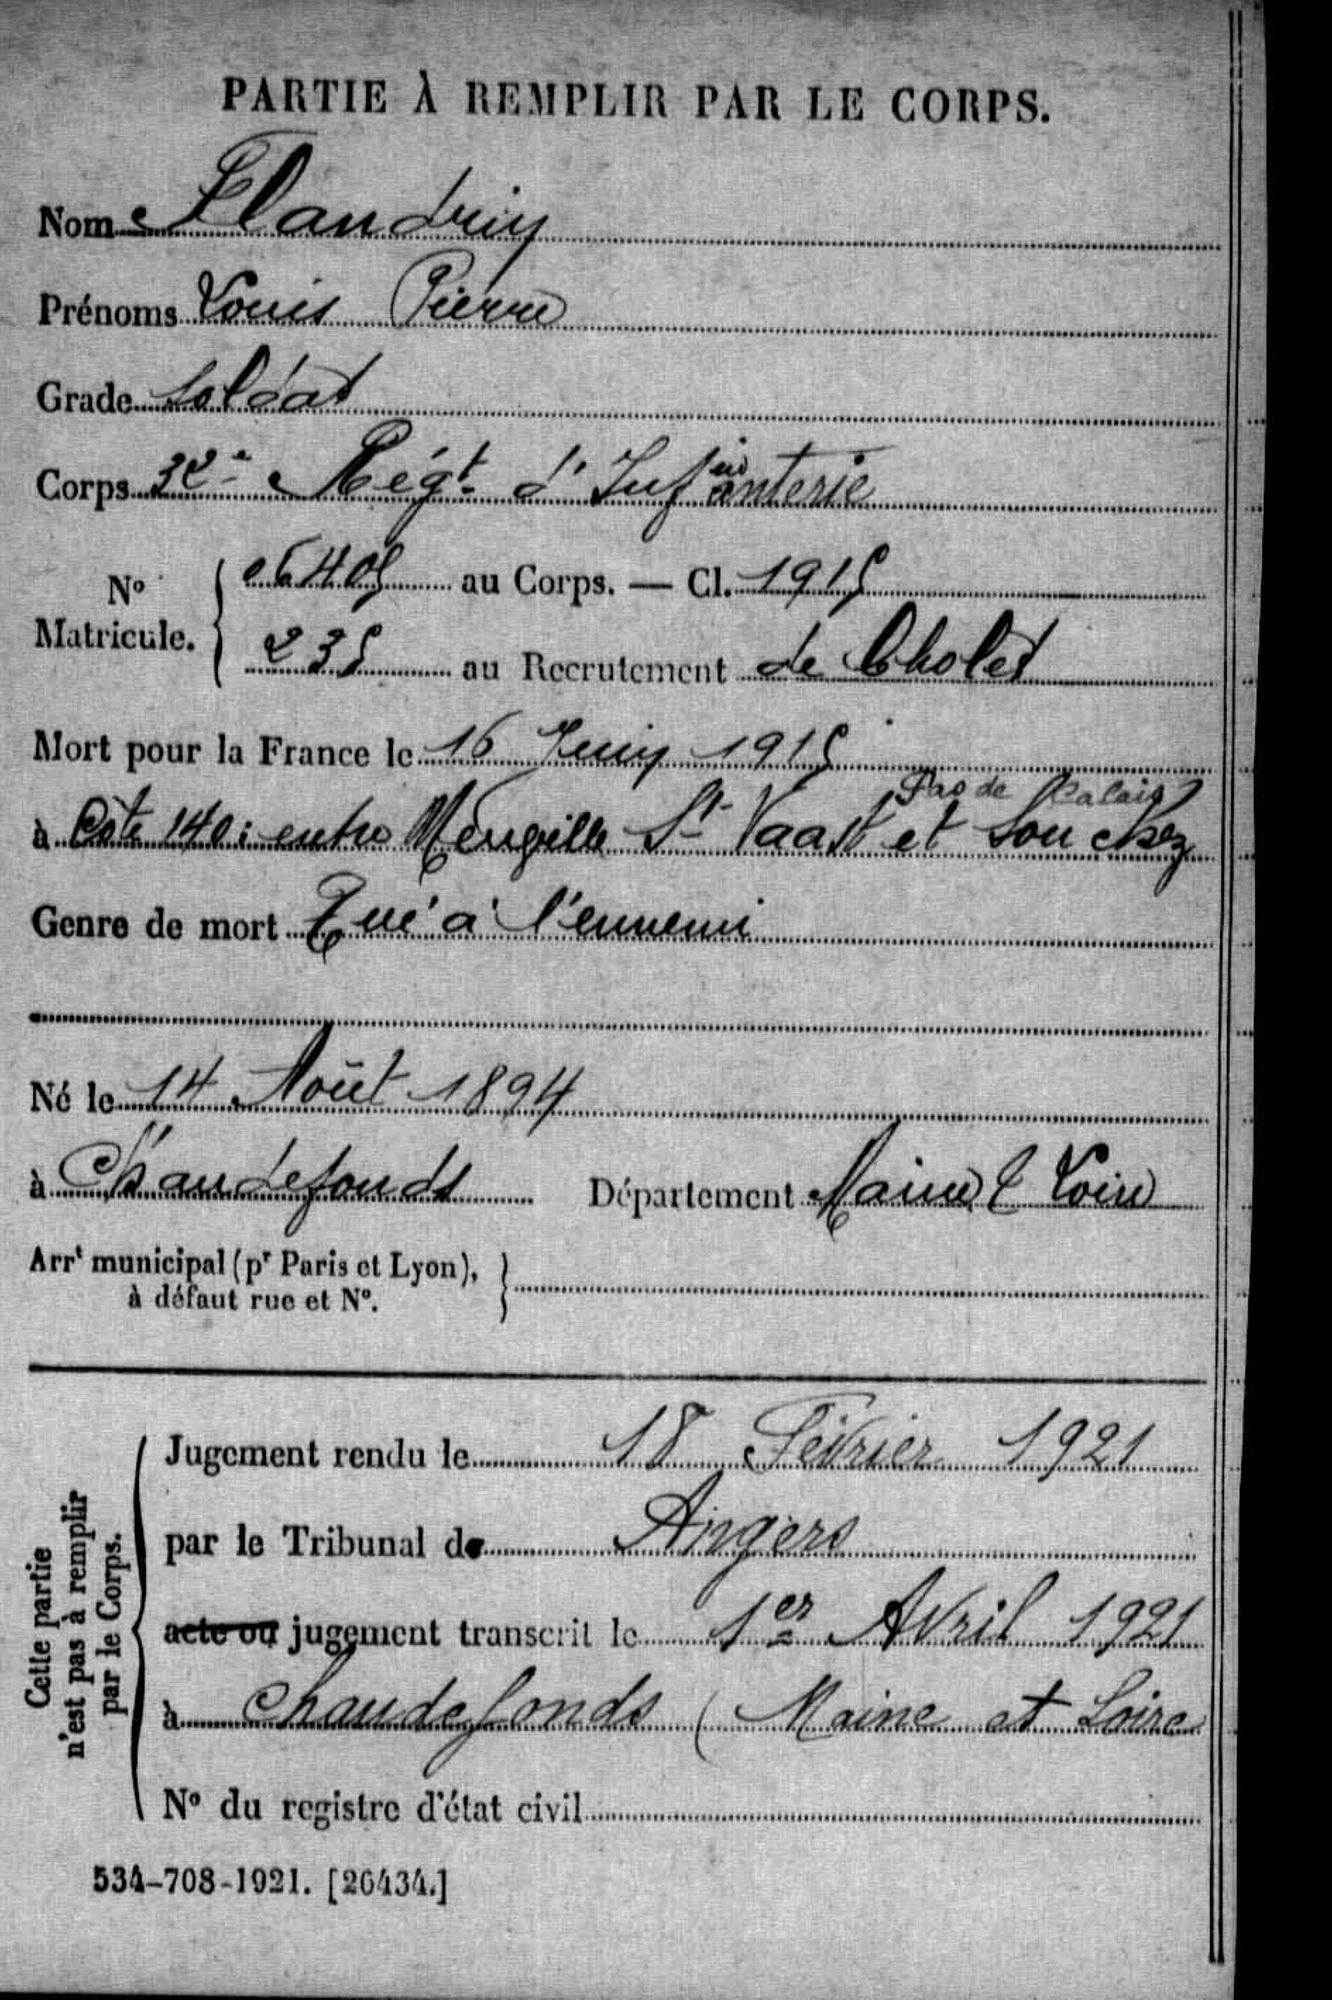 PARTIE À REMPLIR PAR LE CORPS.
Nom Flandrin
Prénoms Louis Pierre
Grade Soldat
Corps 32e Régt d'Infanterie
No Matricule. 06405 au Corps. — Cl. 1915
235 au Recrutement de Cholet
Mort pour la France le 16 Juin 1915
Pas de Calais
à Cote 140: entre Neuville St Vaast et Souchez
Genre de mort Tué à l'ennemi
Né le 14 Août 1894
à Chaudefonds Département Maine & Loire
Arrt municipal (pr Paris et Lyon),
à défaut rue et No.
Cette partie
n'est pas à remplir
par le Corps.
Jugement rendu le 18 Février 1921
par le Tribunal de Angers
acte ou jugement transcrit le 1er Avril 1921
à Chaudefonds (Maine et Loire
No du registre d'état civil
534-708-1921. [26434.]